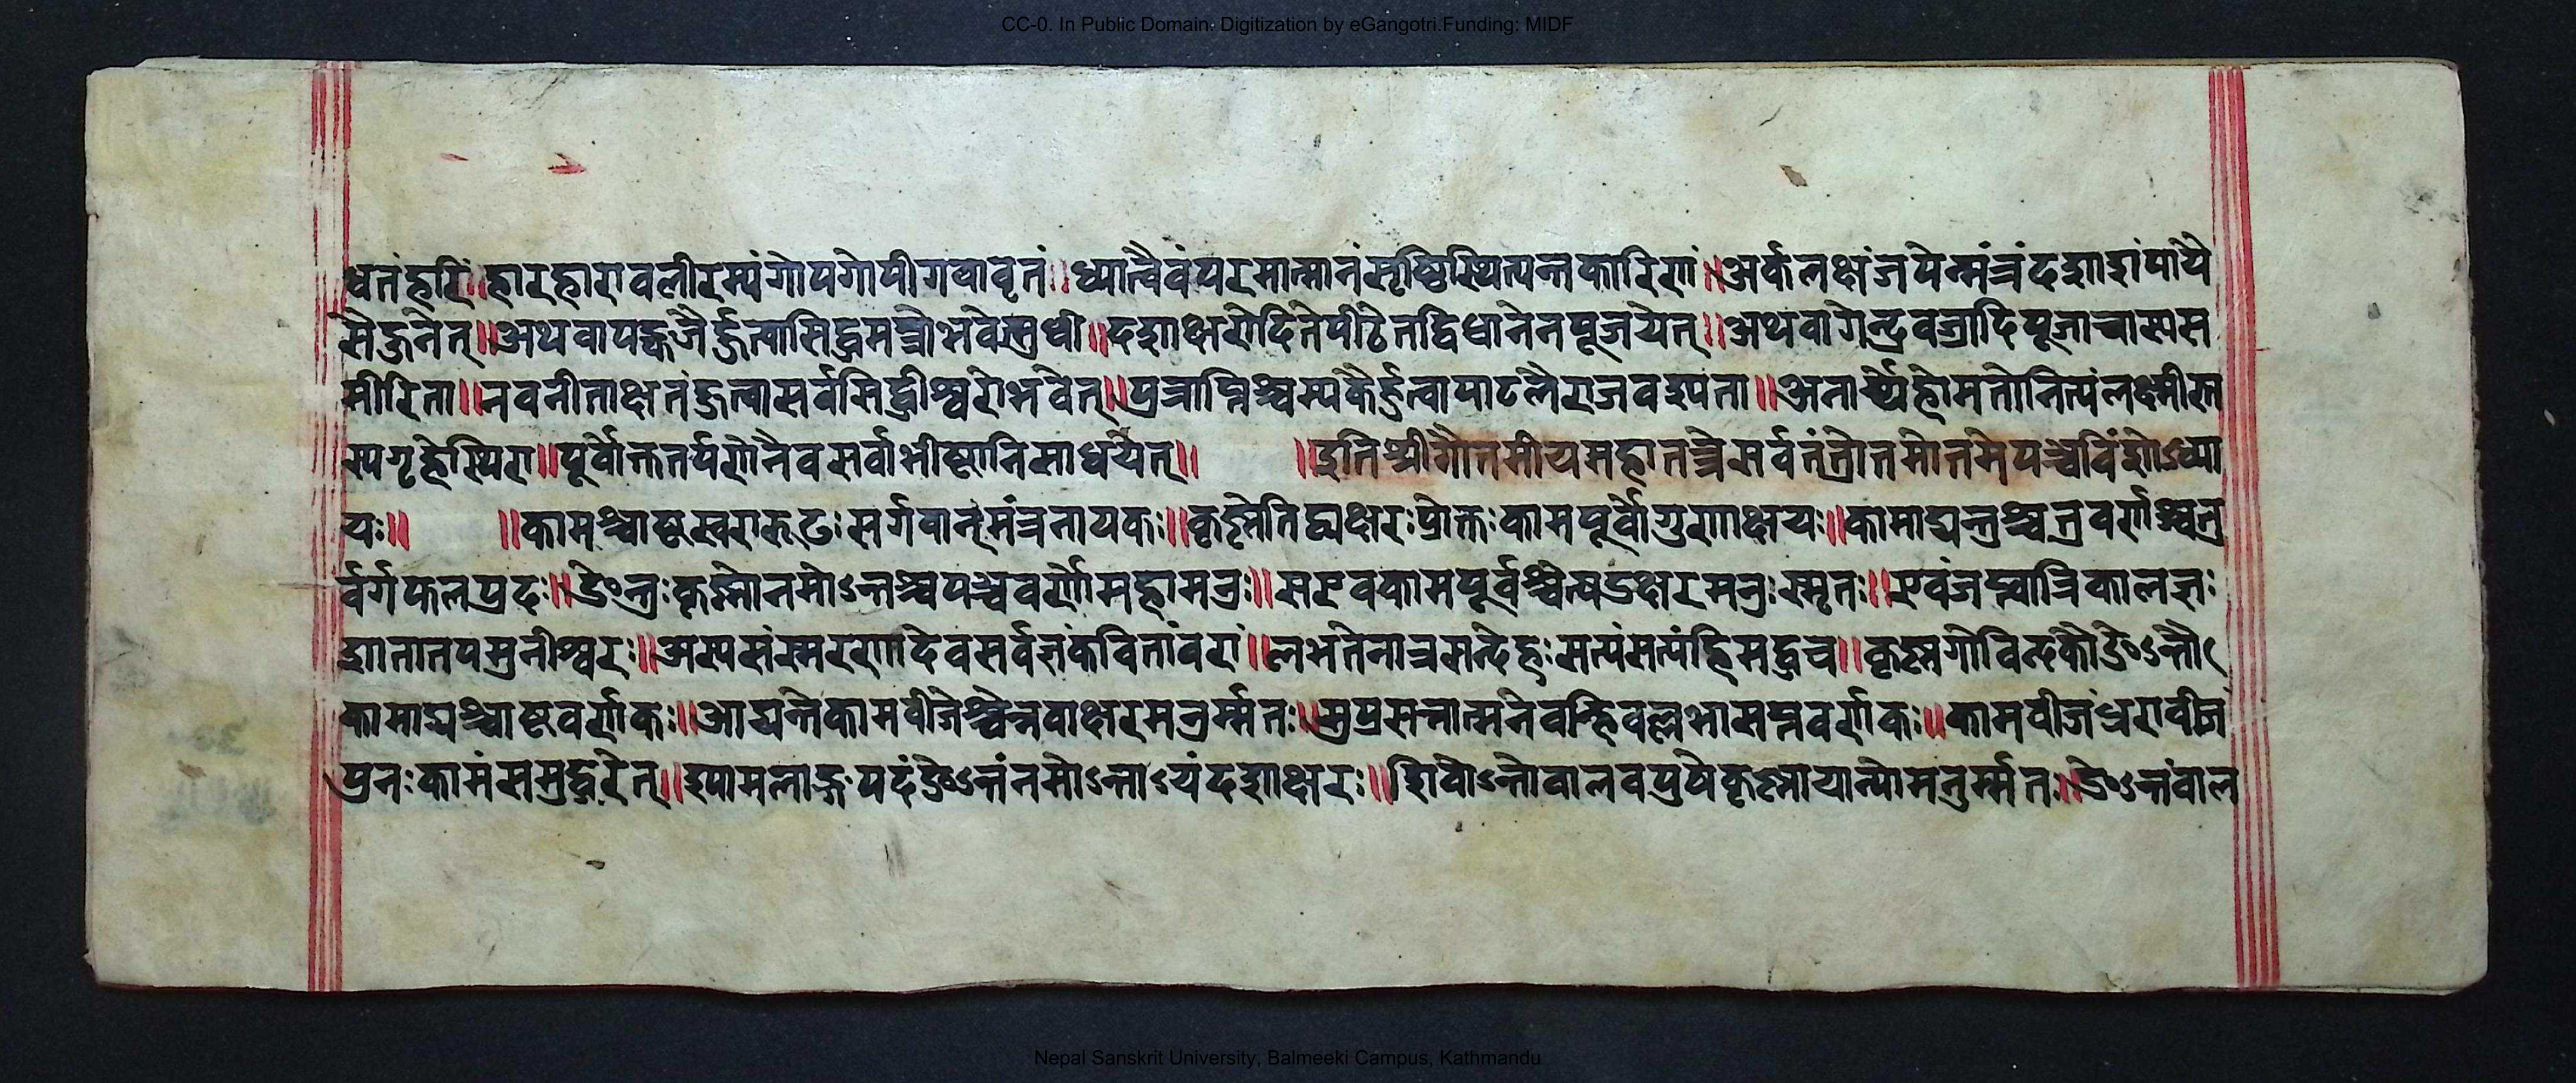 CC-0. In Public Domain. Digitization by eGangotri.Funding: MIDF
धृतंहरिं॥हारहारावलीरम्यंगोपगोपीगवावृतं॥ध्यात्वैवंपरमात्मानंसृष्टिस्थित्यन्तकारिणं॥अर्कलक्षंजपेन्मंत्रंदशाशंपायै
सैर्जुनेत्॥अथवापङ्कजैर्हुत्वासिद्धमन्त्रीभवेत्सुधी॥दशाक्षरोदितेपीठेतद्विधानेनपूजयेत्॥अथवागेन्द्रवज्रादिपूजाचास्यस
मीरिता॥नवनीताक्षतंहुत्वासर्वसिद्धीश्वरोभवेत्॥पुत्राप्तिश्चम्पकैर्हुत्वापाटलैराजवश्यता॥अनार्च्चेहोमतोनित्यंलक्ष्मीस्त
स्यगृहेस्थिरा॥पूर्वोक्ततर्पणेनैवसर्वाभीष्टानिसाधयेत्॥ ॥इतिश्रीगौतमीयमहातन्त्रेसर्वतंत्रोत्तमोत्तमेपञ्चविंशोऽध्या
यः॥ ॥कामश्चाष्टस्वरारूढः सर्गवान्मंत्रनायकः॥कृष्णेतिद्व्यक्षरःप्रोक्तःकामपूर्वोगुणाक्षयः॥कामाद्यन्तुश्चतुवर्णाश्चतु
र्वर्गफलप्रदः॥ङेन्तःकृष्णोनमोऽन्तश्चपञ्चवर्णोमहामनुः॥सएवकामपूर्वश्चेत्षडक्षरमनुःस्मृतः॥एवंजप्त्वात्रिकालज्ञः
शातातपमुनीश्वरः॥अस्यसंस्मरणादेवसर्वज्ञंकवितांवरां॥लभतेनात्रसन्देहःसत्यंसत्यंहिमद्वच॥कृष्णगोविन्दकौङेऽन्तौ
कामाद्यश्चाष्टवर्णकः॥आद्यन्तेकामबीजेश्चेन्नवाक्षरमनुर्म्मतः॥सुप्रसन्नात्मनेवन्हिवल्लभासप्तवर्णकः॥कामबीजंधराबीजं
पुनःकामंसमुद्धरेत्॥श्यामलाङ्गपदंङेऽन्तंनमोऽन्ताऽयंदशाक्षरः॥शिवोऽन्तोबालवपुषेकृष्णायान्योमनुर्म्मतः॥ङेऽन्तंबाल
Nepal Sanskrit University, Balmeeki Campus, Kathmandu